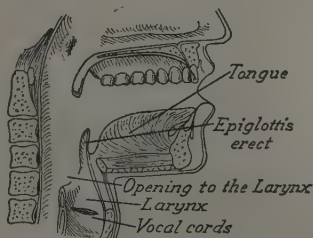 Tongue
Epiglottis
erect
Opening to the Larynx
Larynx
Vocal cords